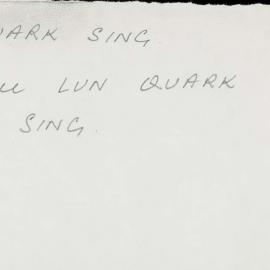 UARK SING
LUN QUARK
SING.